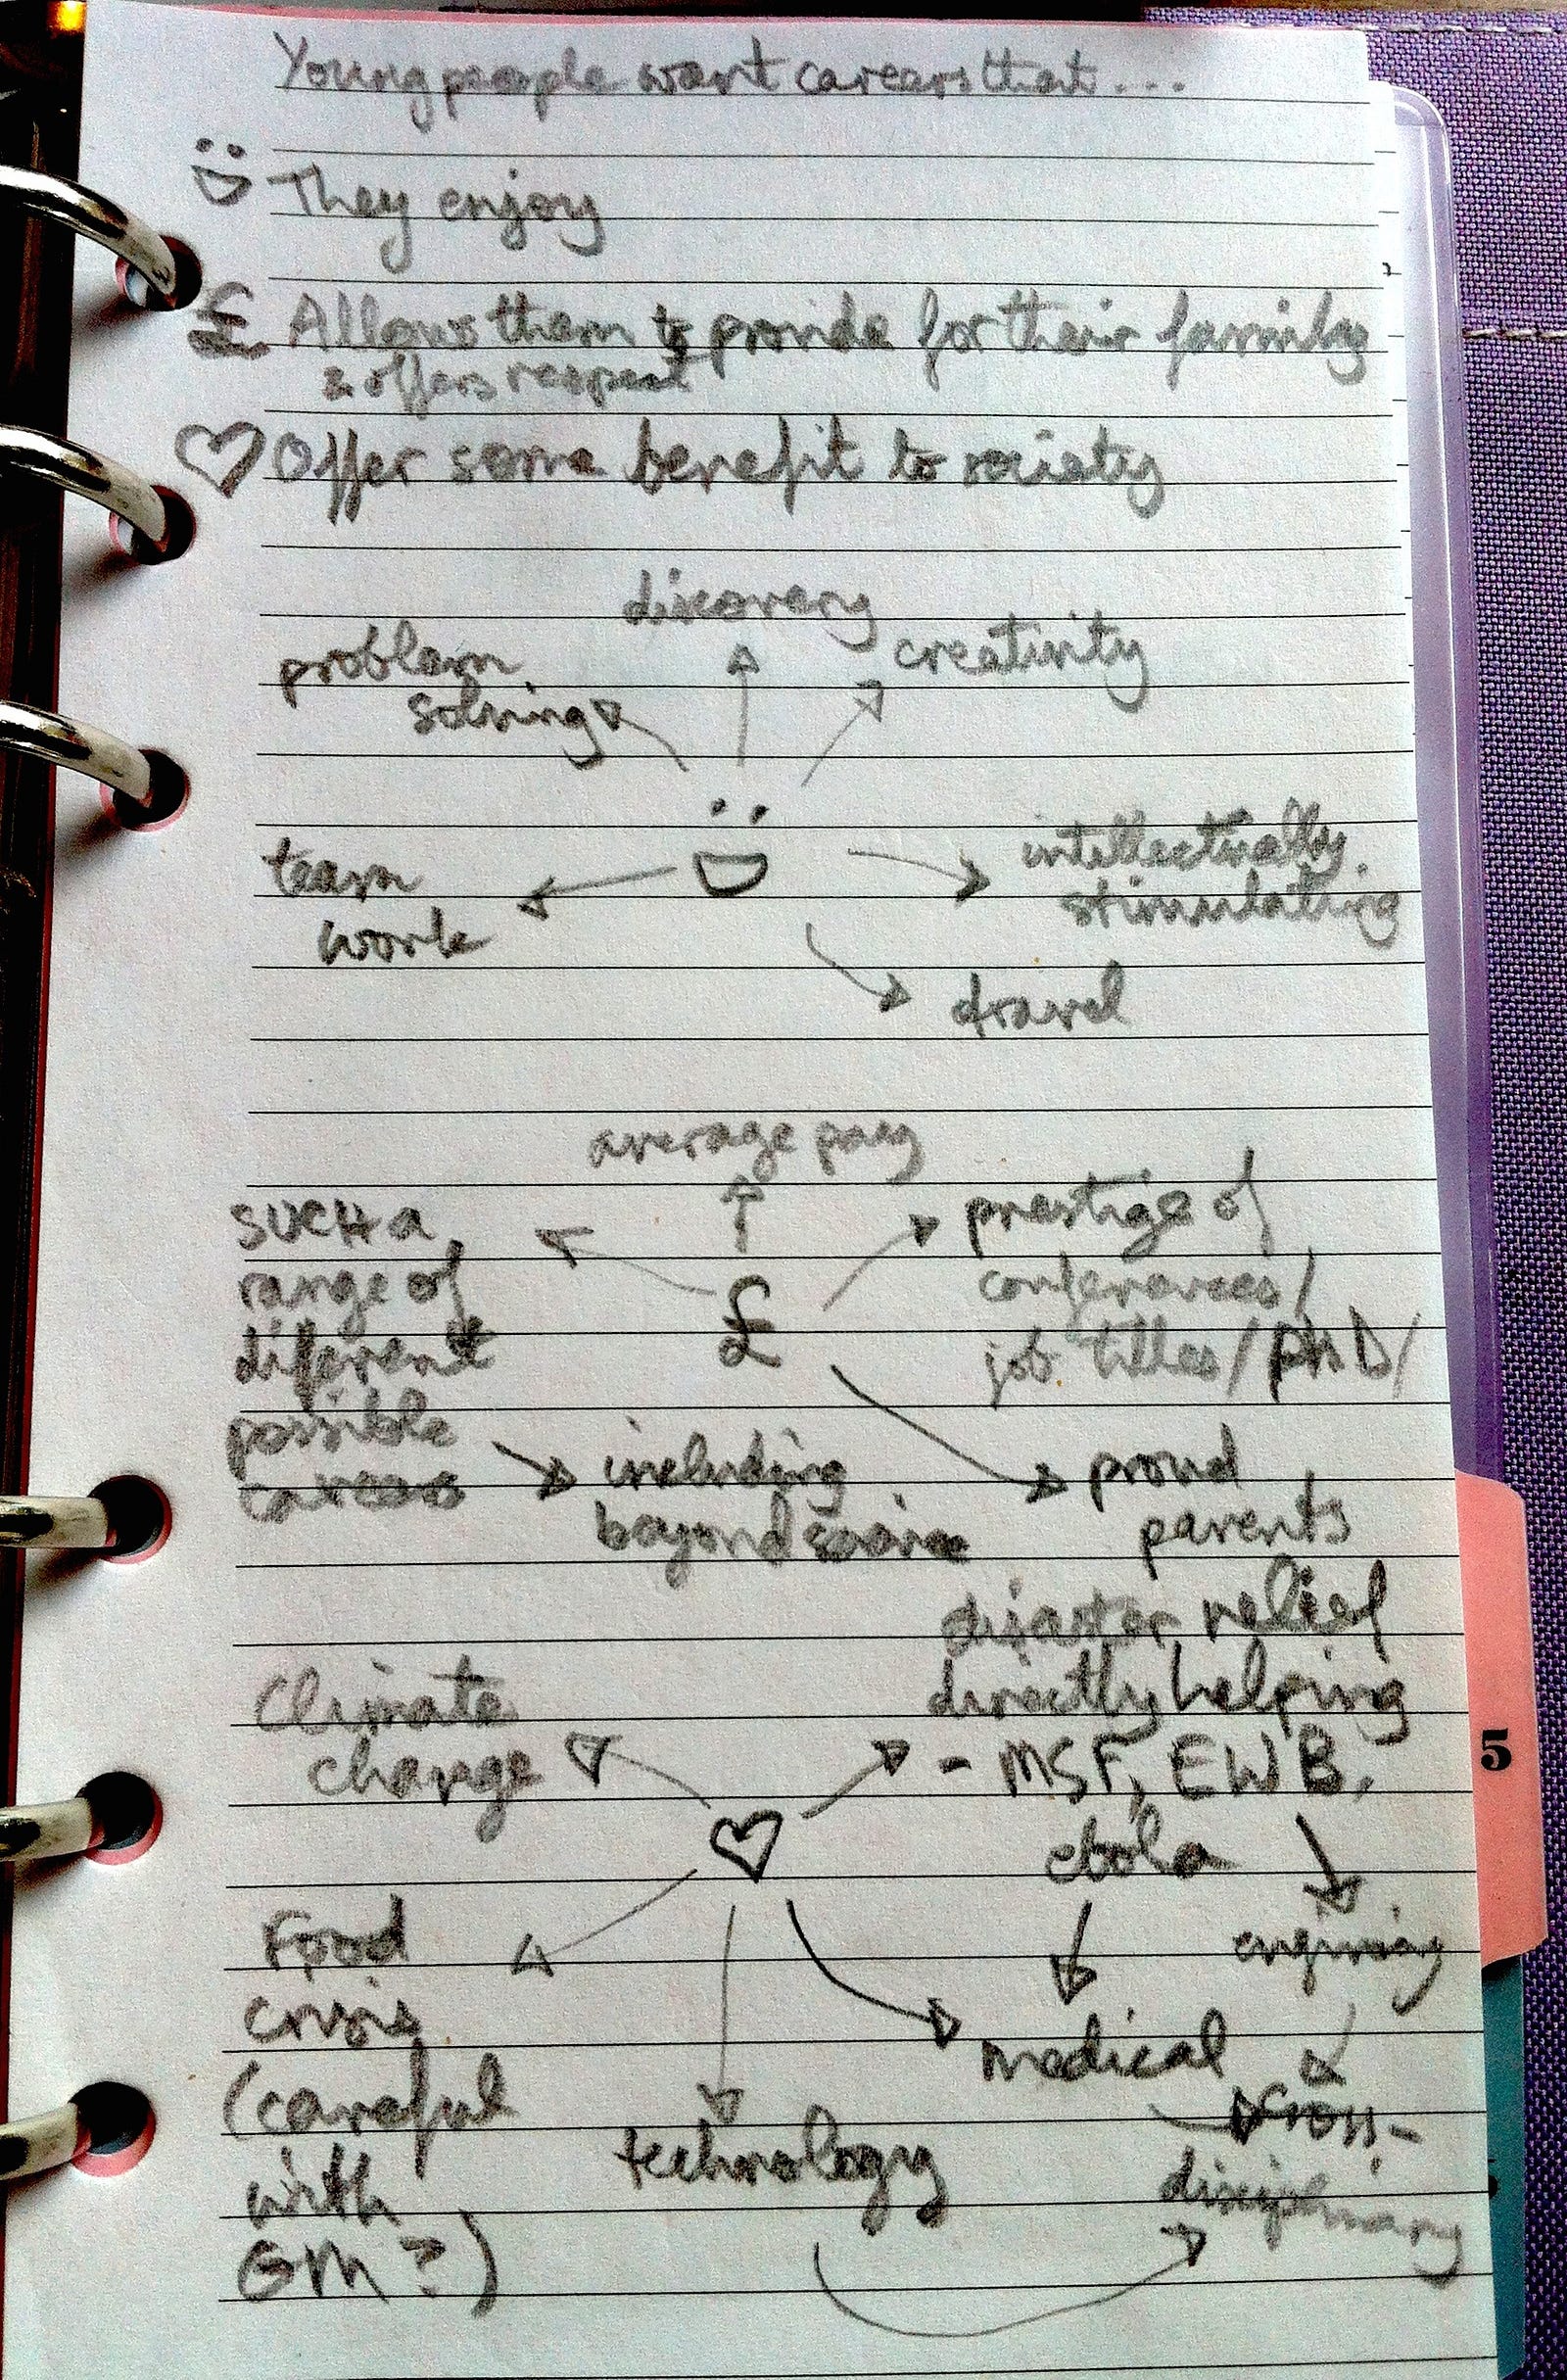 Young people want careers that...
They enjoy
£ Allows them to provide for their family
& offers respect
Offer some benefit to society
discovery
creativity
problem
solving
intellectually
stimulating
team
work
travel
average pay
SUCH a
range of
different
possible
careers
£
prestige of
conferences/
job titles/PhD/
including
beyond science
proud
parents
disaster relief
directly helping
- MSF, EWB,
ebola
Climate
change
5
Food
crisis
(careful
with
GM?)
medical
technology
cross-
disciplinary